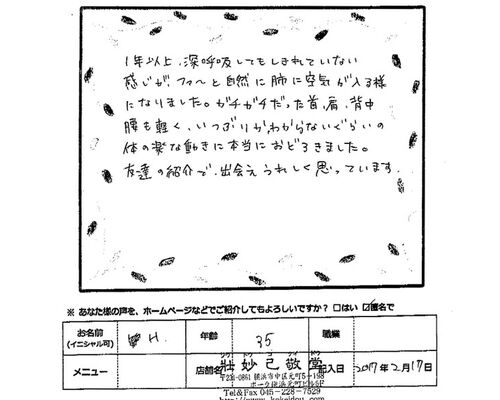 1年以上、深呼吸してもしきれていない
感じが、ファ〜と自然に肺に空気が入る様
になりました。ガチガチだった首、肩、背中
腰も軽く、いつぶりかわからないぐらいの
体の楽な動きに本当におどろきました。
友達の紹介で、出会えうれしく思っています。
※ あなた様の声を、ホームページなどでご紹介してもよろしいですか? □はい ☑匿名で
お名前 (イニシャル可) H. 年齢 35 職業
メニュー 店舗名 壮妙己敬堂 記入日 2017年2月17日
〒231-0861 横浜市中区元町5-198
ポーク横浜元町ビル5F
Tel&Fax 045-228-7529